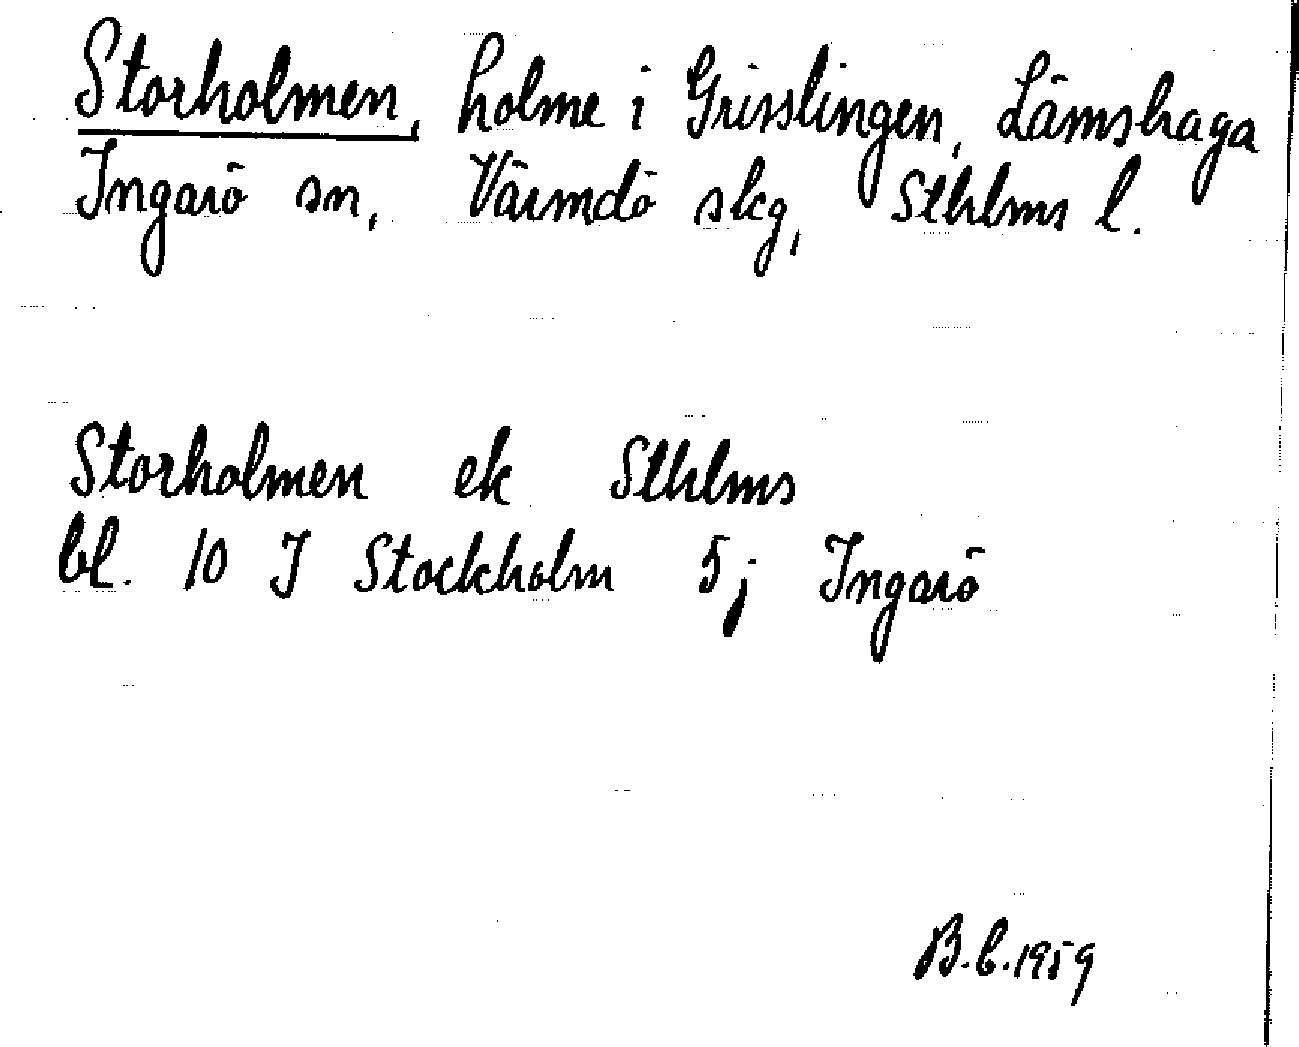 Storholmen, holme i Grisslingen, Lämshaga
Ingarö sn, Värmdö skg, Sthlms l.
Storholmen ek Sthlms
bl. 10 I Stockholm 5j Ingarö
B.C. 1959